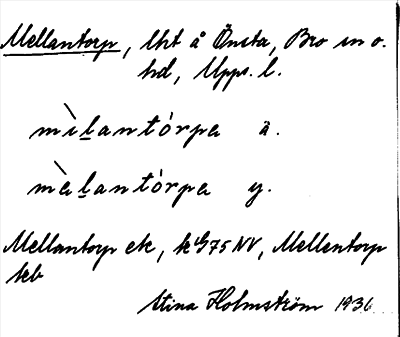 Mellantorp, lht å Önsta, Bro sn o.
hd, Upps. l.
mìlantórpa ä.
màlantórpa y.
Mellantorp ek, NV, Mellentorp
keb
Stina Holmström 1936